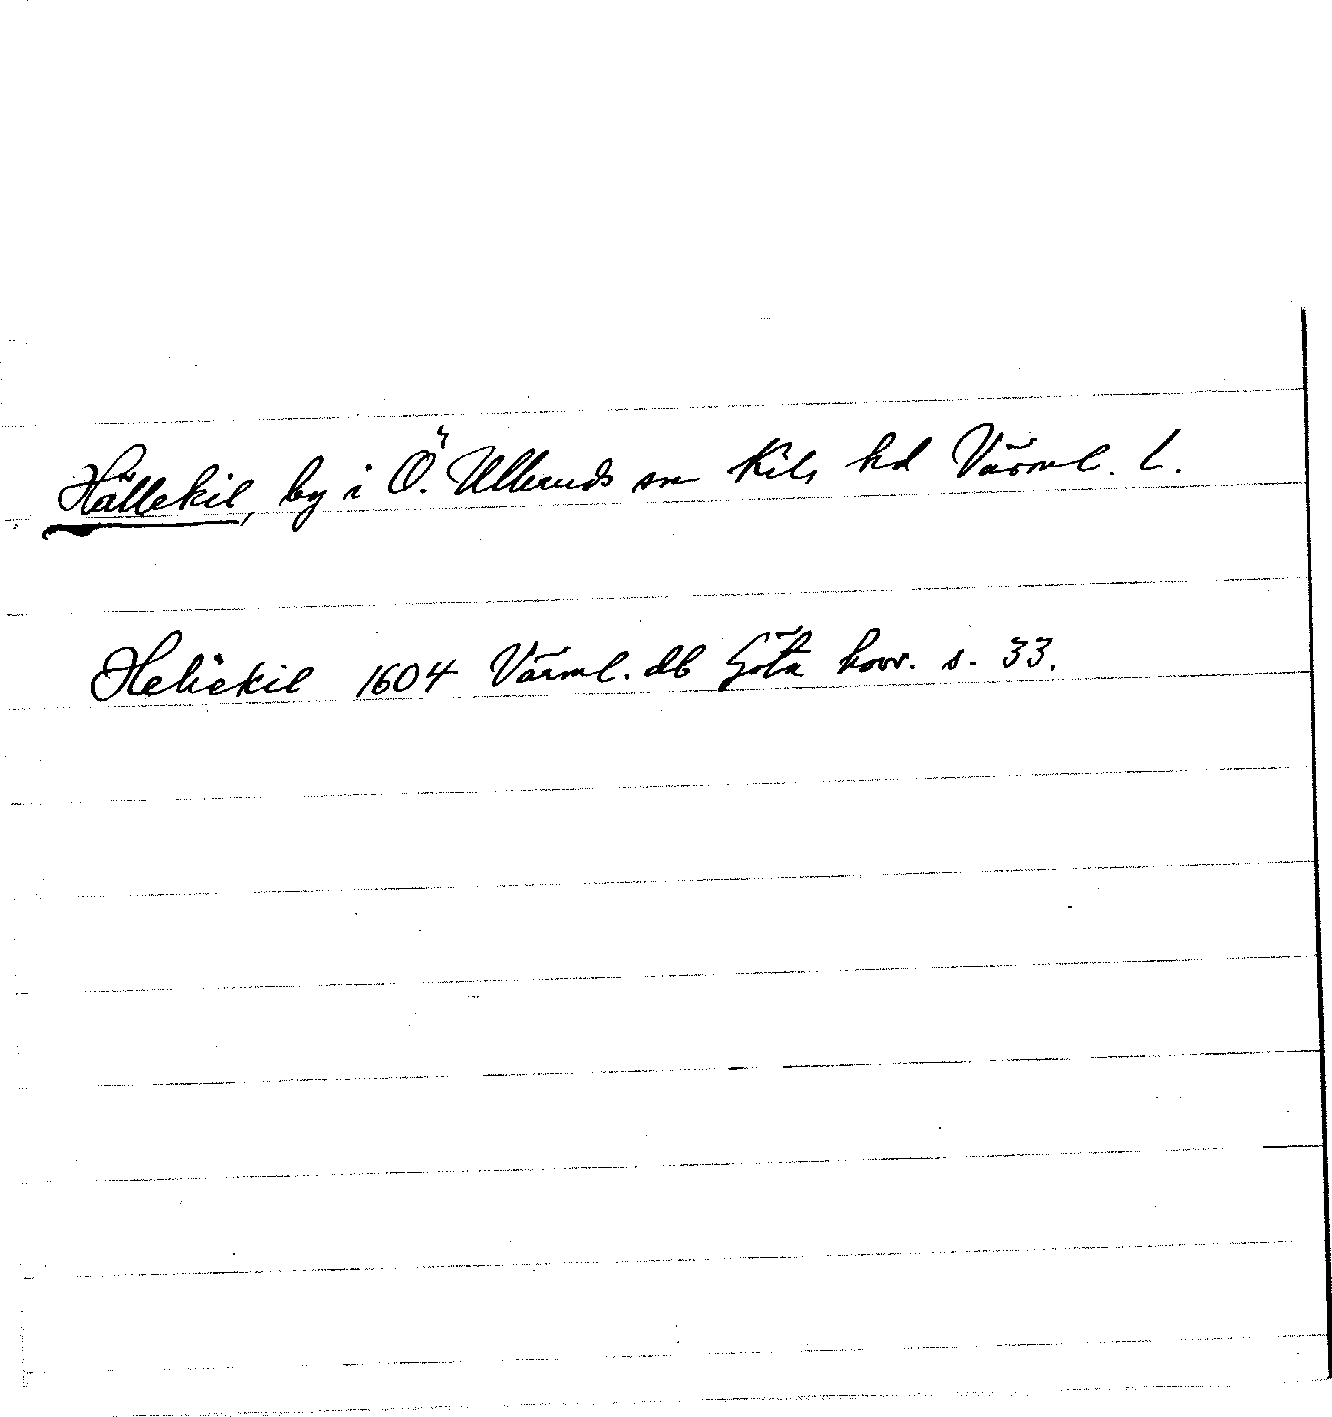 Hällekil, by i Ö. Ulleruds sn Kils hd Värml. l.
Heliekil 1604 Värml. db Göta hovr. s. 33.